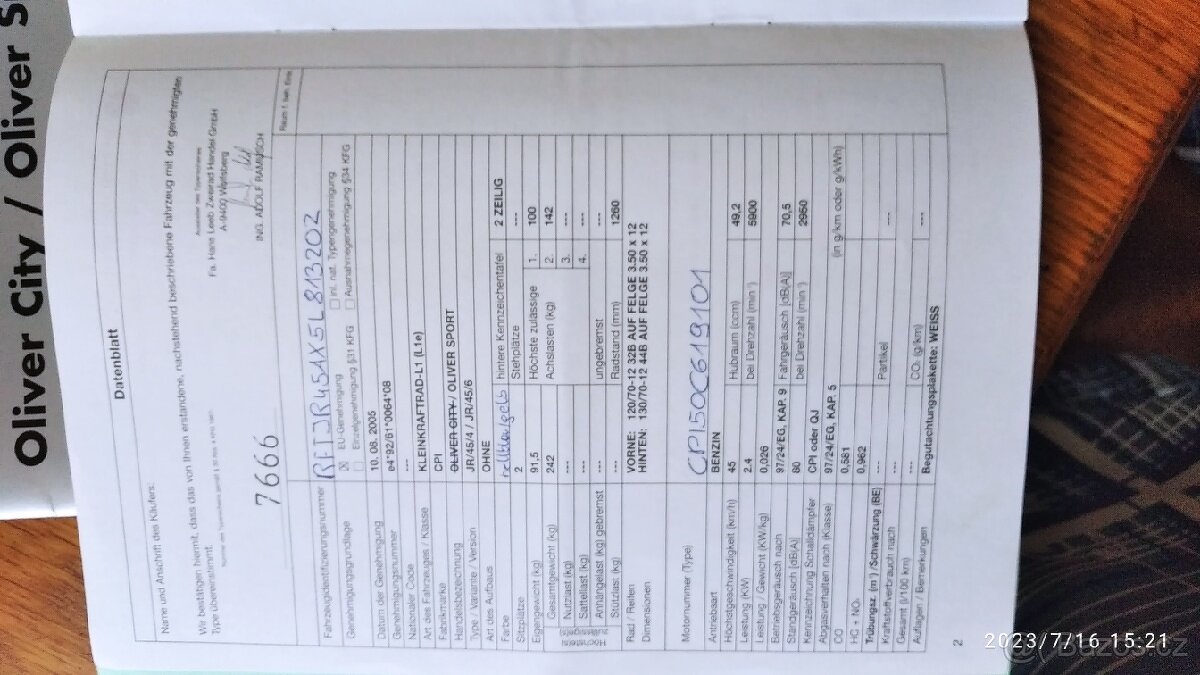 Oliver City / Oliver S
Datenblatt
Name und Anschrift des Käufers:
Wir bestätigen hiermit, dass das von Ihnen erstandene, nachstehend beschriebene Fahrzeug mit der genehmigten
Type übereinstimmt.
Fa. Hans Leeb Zweirad Handel GmbH
A-9400 Wolfsberg
7666
ING. ADOLF RAMMSCH
Fahrzeugidentifizierungsnummer RFTJR451X5L813202
Genehmigungsgrundlage ☒ EU-Genehmigung ☐ Inl. nat. Typengenehmigung
☐ Einzelgenehmigung §31 KFG ☐ Ausnahmegenehmigung §34 KFG
Datum der Genehmigung 10. 06. 2005
Genehmigungsnummer e4*92/61*0064*08
Nationaler Code ---
Art des Fahrzeuges / Klasse KLEINKRAFTRAD-L1 (L1e)
Fabrikmarke CPI
Handelsbezeichnung OLIVER CITY / OLIVER SPORT
Type / Variante / Version JR/45/4 / JR/45/6
Art des Aufbaus OHNE
Farbe hintere Kennzeichentafel 2 ZEILIG
Sitzplätze 2 Stehplätze ---
Eigengewicht (kg) 91,5 Höchste zulässige 1. 100
Gesamtgewicht (kg) 242 Achslasten (kg) 2. 142
Nutzlast (kg) --- 3. ---
Sattellast (kg) --- 4. ---
Anhängelast (kg) gebremst --- ungebremst ---
Stützlast (kg) --- Radstand (mm) 1260
Rad / Reifen VORNE: 120/70-12 32B AUF FELGE 3.50 x 12
Dimensionen HINTEN: 130/70-12 44B AUF FELGE 3.50 x 12
Motornummer (Type) CPI50C619101
Antriebsart BENZIN
Höchstgeschwindigkeit (km/h) 45 Hubraum (ccm) 49,2
Leistung (KW) 2.4 bei Drehzahl (min⁻¹) 5900
Leistung / Gewicht (KW/kg) 0,026
Betriebsgeräusch nach 97/24/EG, KAP. 9 Fahrgeräusch [dB(A)] 70,5
Standgeräusch [dB(A)] 80 bei Drehzahl (min⁻¹) 2950
Kennzeichnung Schalldämpfer CPI oder QJ
Abgasverhalten nach (Klasse) 97/24/EG, KAP. 5 (in g/km oder g/kWh)
CO 0,581
HC + NOₓ 0,962
Trübungsz. (m⁻¹)/Schwärzung (BE) --- Partikel ---
Kraftstoffverbrauch nach ---
Gesamt (l/100 Km) --- CO₂ (g/km) ---
Auflagen / Bemerkungen Begutachtungsplakette: WEISS
2
2023/7/16 15:21
@Bazos.cz